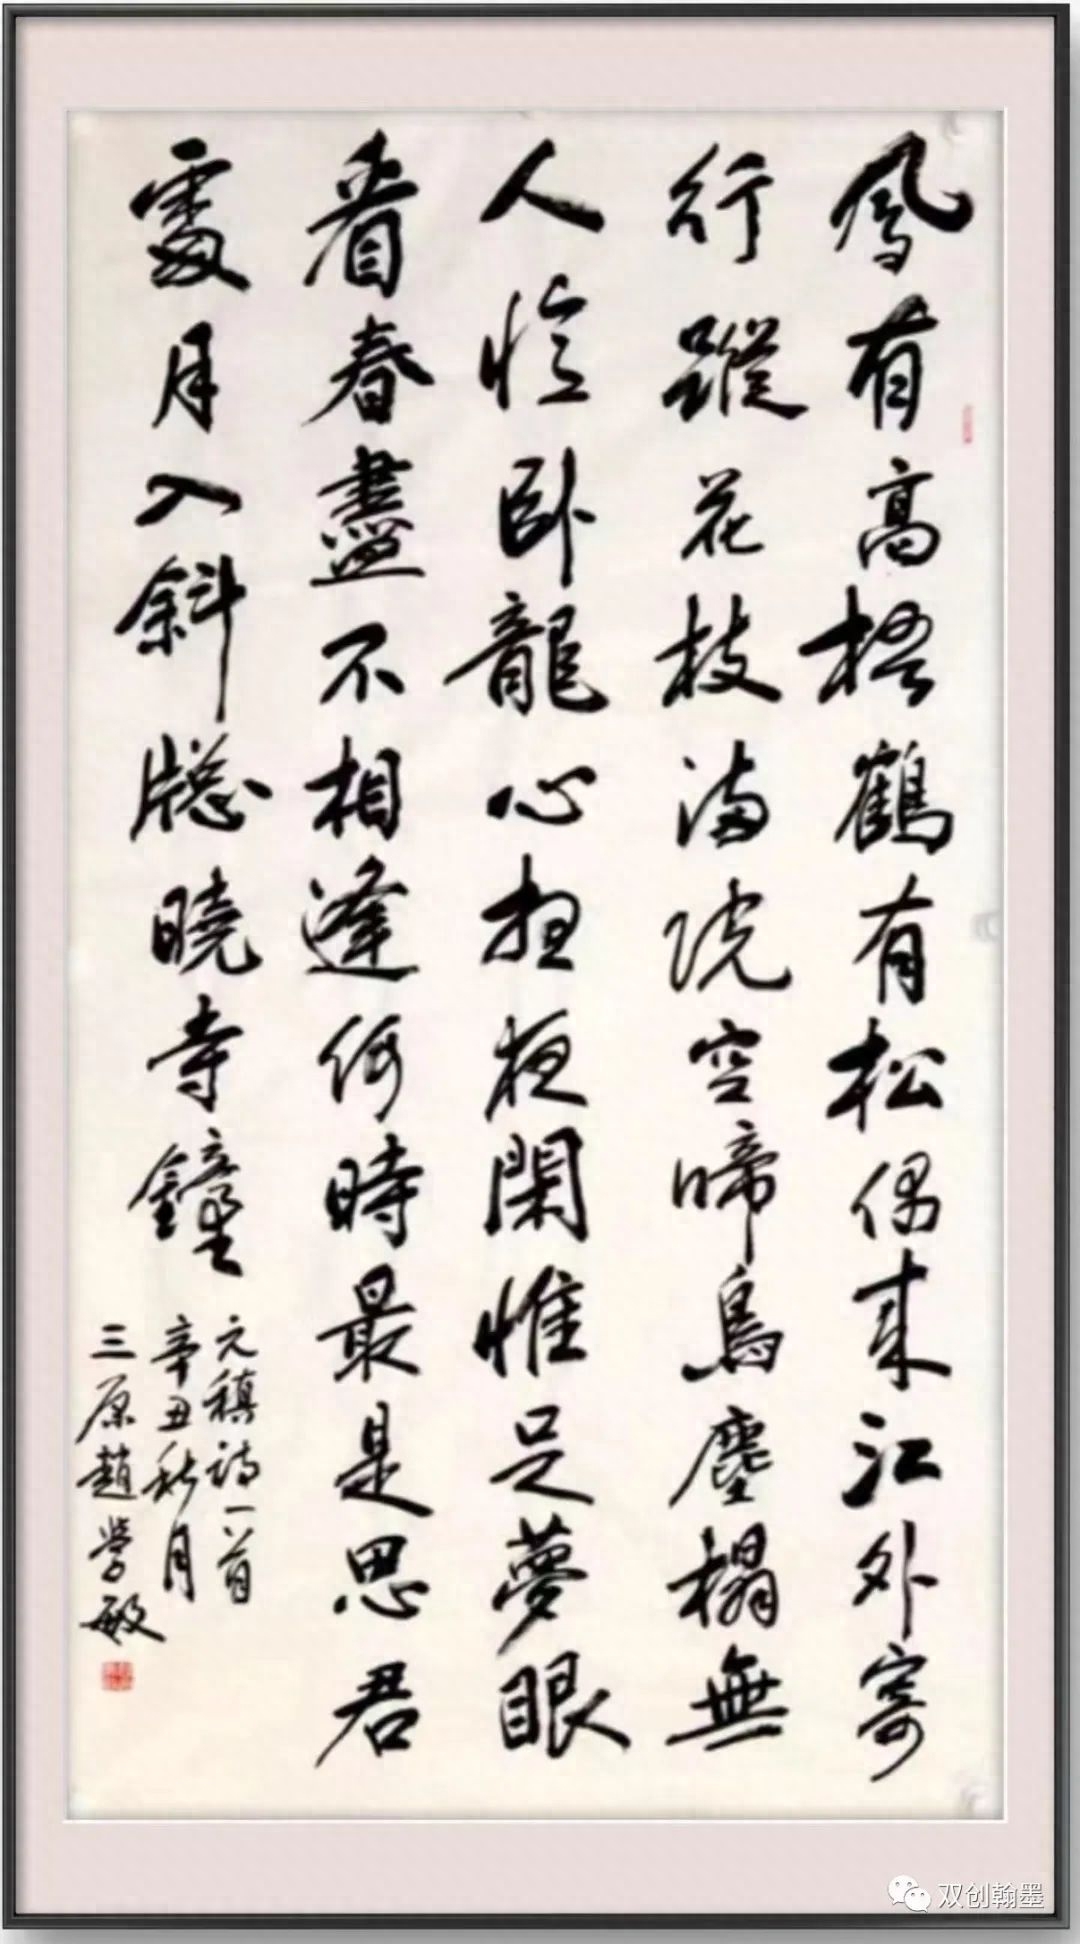 鳳有高梧鶴有松偶来江外寄
行蹤花枝滿院空啼鳥塵榻無
人憶卧龍心想夜閑惟足夢眼
看春盡不相逢何時最是思君
處月入斜牕曉寺鐘
元稹詩一首
辛丑秋月
三原趙學敏
双创翰墨